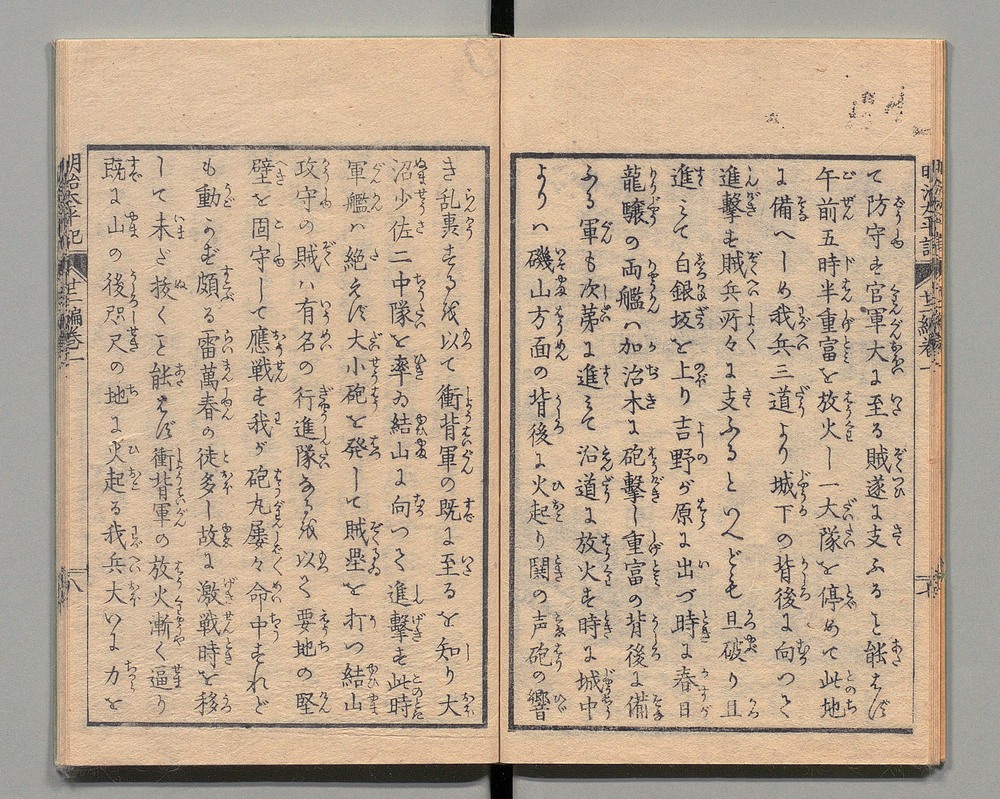 て防守す官軍大に至る賊遂に支ふること能はず
午前五時半重富を放火し一大隊を停めて此地
に備へしめ我兵三道より城下の背後に向つて
進撃す賊兵所々に支ふるといへども且破り且
進みて白銀坂を上り吉野が原に出づ時に春日
龍驤の両艦ハ加治木に砲撃し重富の背後に備
ふる軍も次第に進みて沿道に放火す時に城中
よりハ磯山方面の背後に火起り鬨の声砲の響
き乱裏するを以て衝背軍の既に至るを知り大
沼少佐二中隊を率ゐ結山に向つて進撃す此時
軍艦ハ絶えず大小砲を発して賊塁を打つ結山
攻守の賊ハ有名の行進隊なるを以て要地の堅
壁を固守して應戦す我が砲丸屡々命中すれど
も動かず頗る雷萬春の徒多し故に激戦時を移
して未だ抜くこと能はず衝背軍の放火漸く逼り
既に山の後咫尺の地に火起る我兵大いに力を
明治太平記
廿二編巻一
八
明治太平記
廿二編巻一